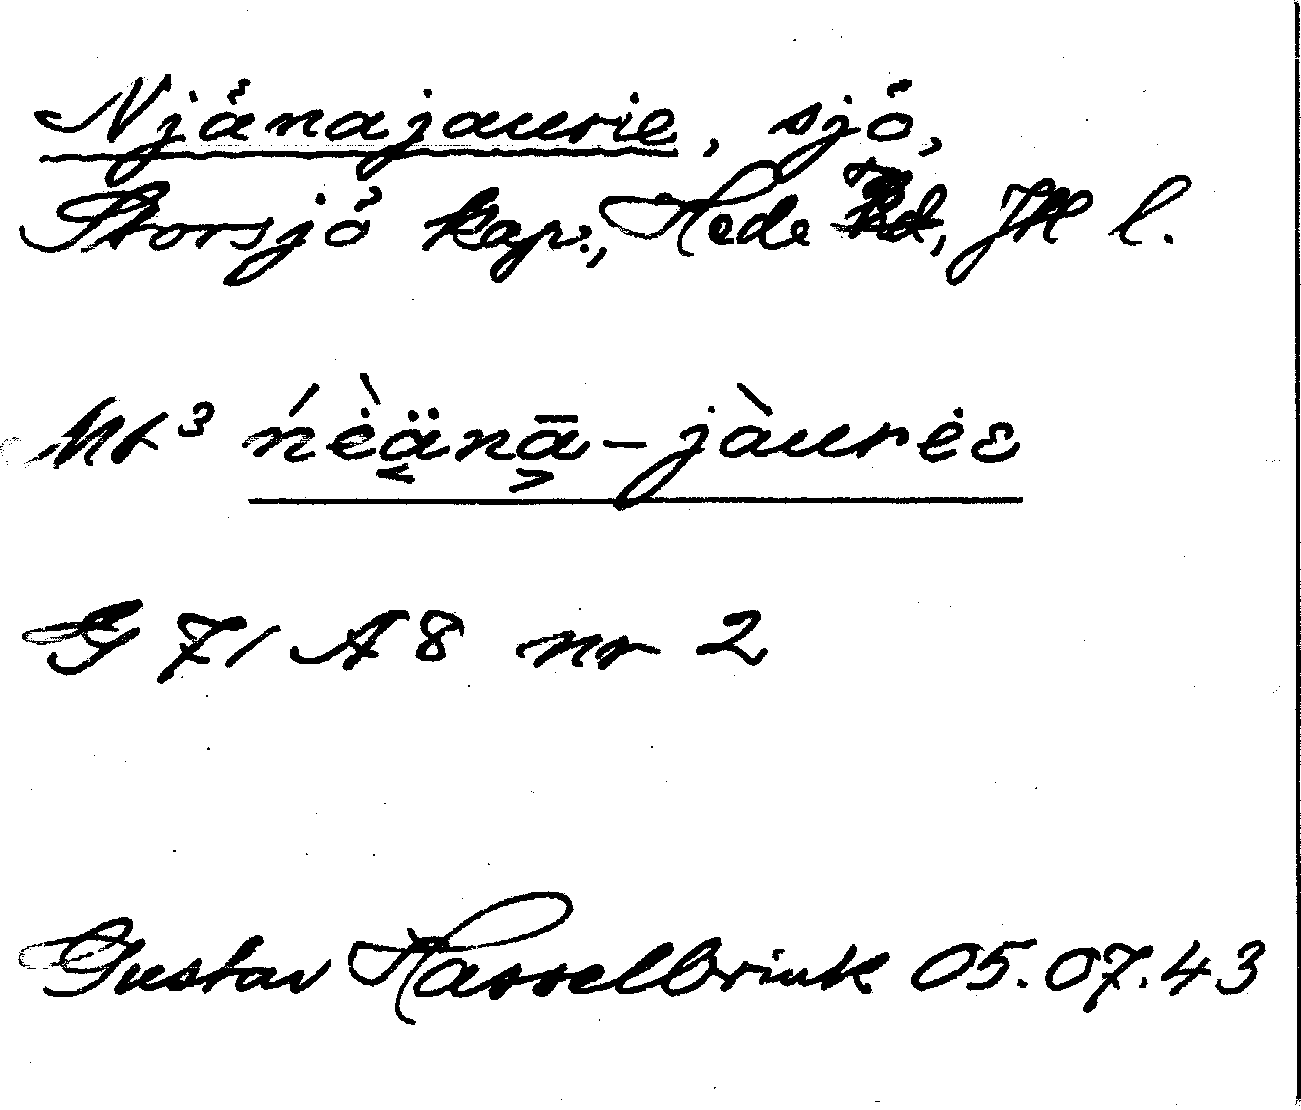 Njånajaurie, sjö,
Storsjö kap., Hede Td, JH l.
Nt³ ńèänā-jàurėε
G 71 A 8 nr 2
Gustav Hasselbrink 05.07.43